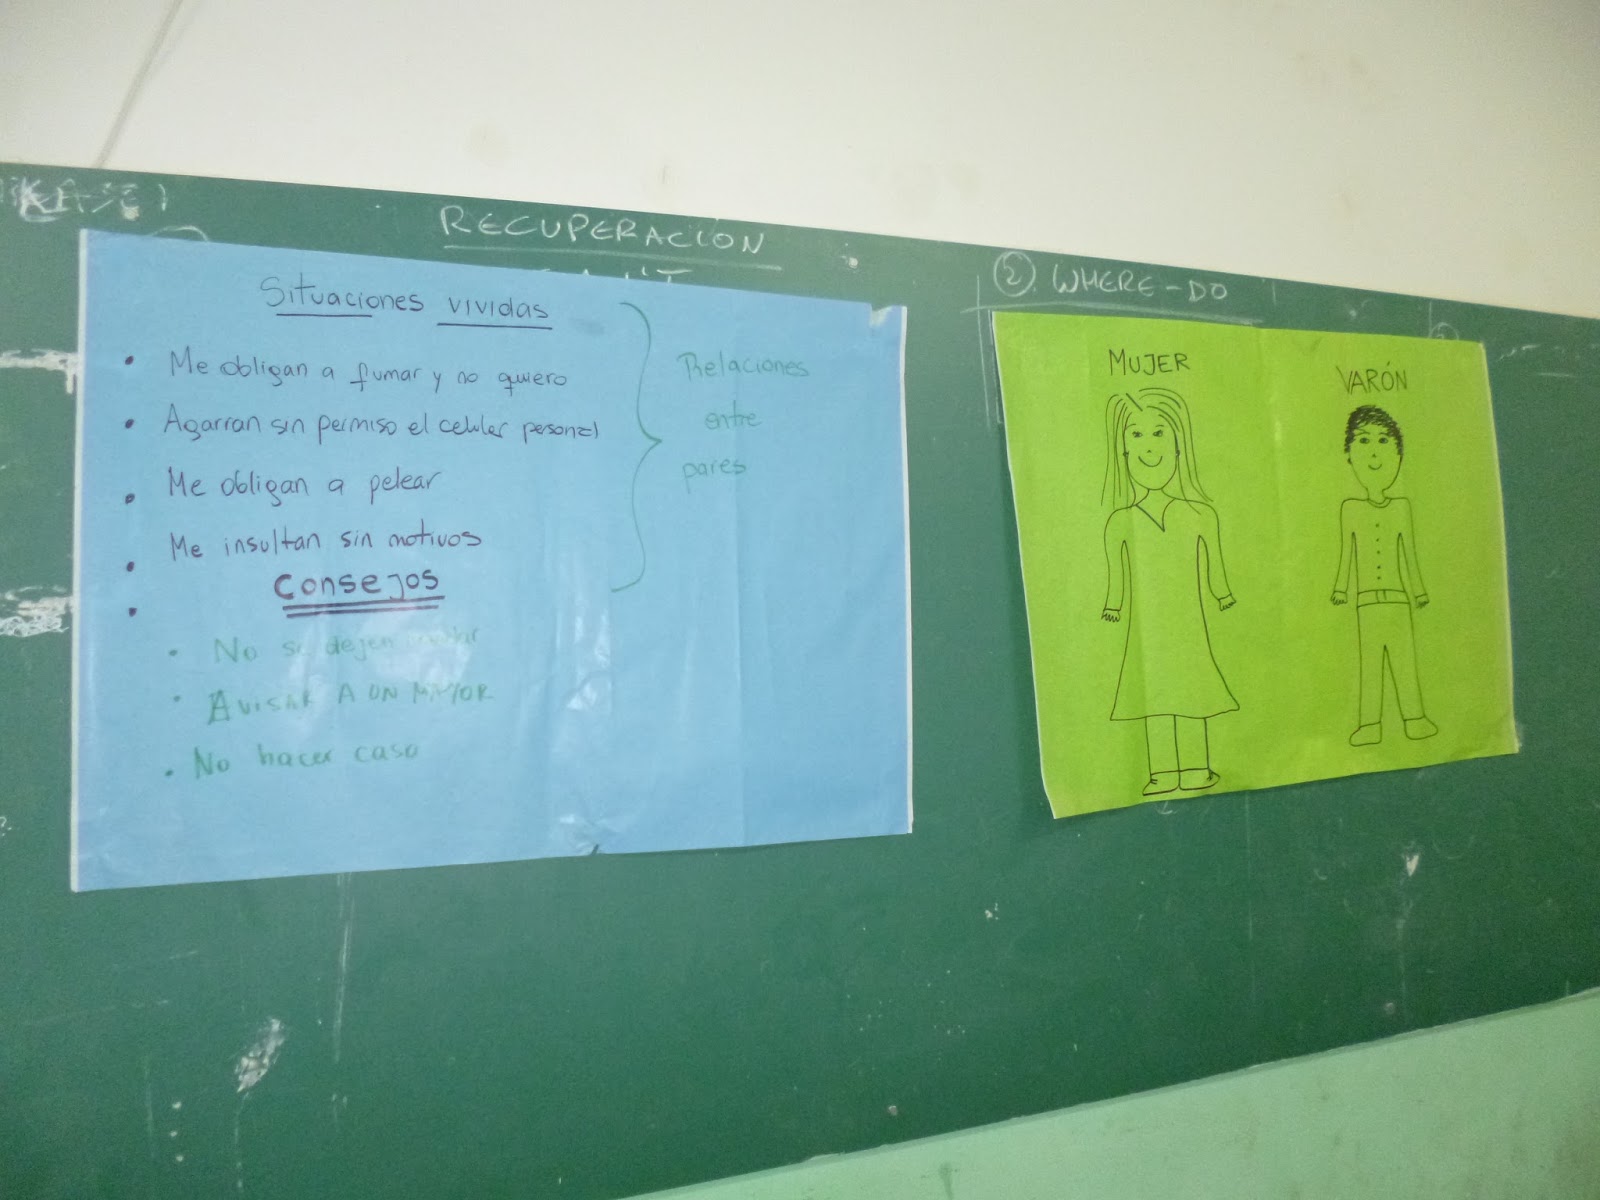 RECUPERACION
Situaciones vividas
• Me obligan a fumar y no quiero
• Agarran sin permiso el celular personal
• Me obligan a pelear
• Me insultan sin motivos
Relaciones
entre
pares
Consejos
• No se dejen
• AVISAR A UN MAYOR
• No hacer caso
2. WHERE-DO
MUJER
VARÓN